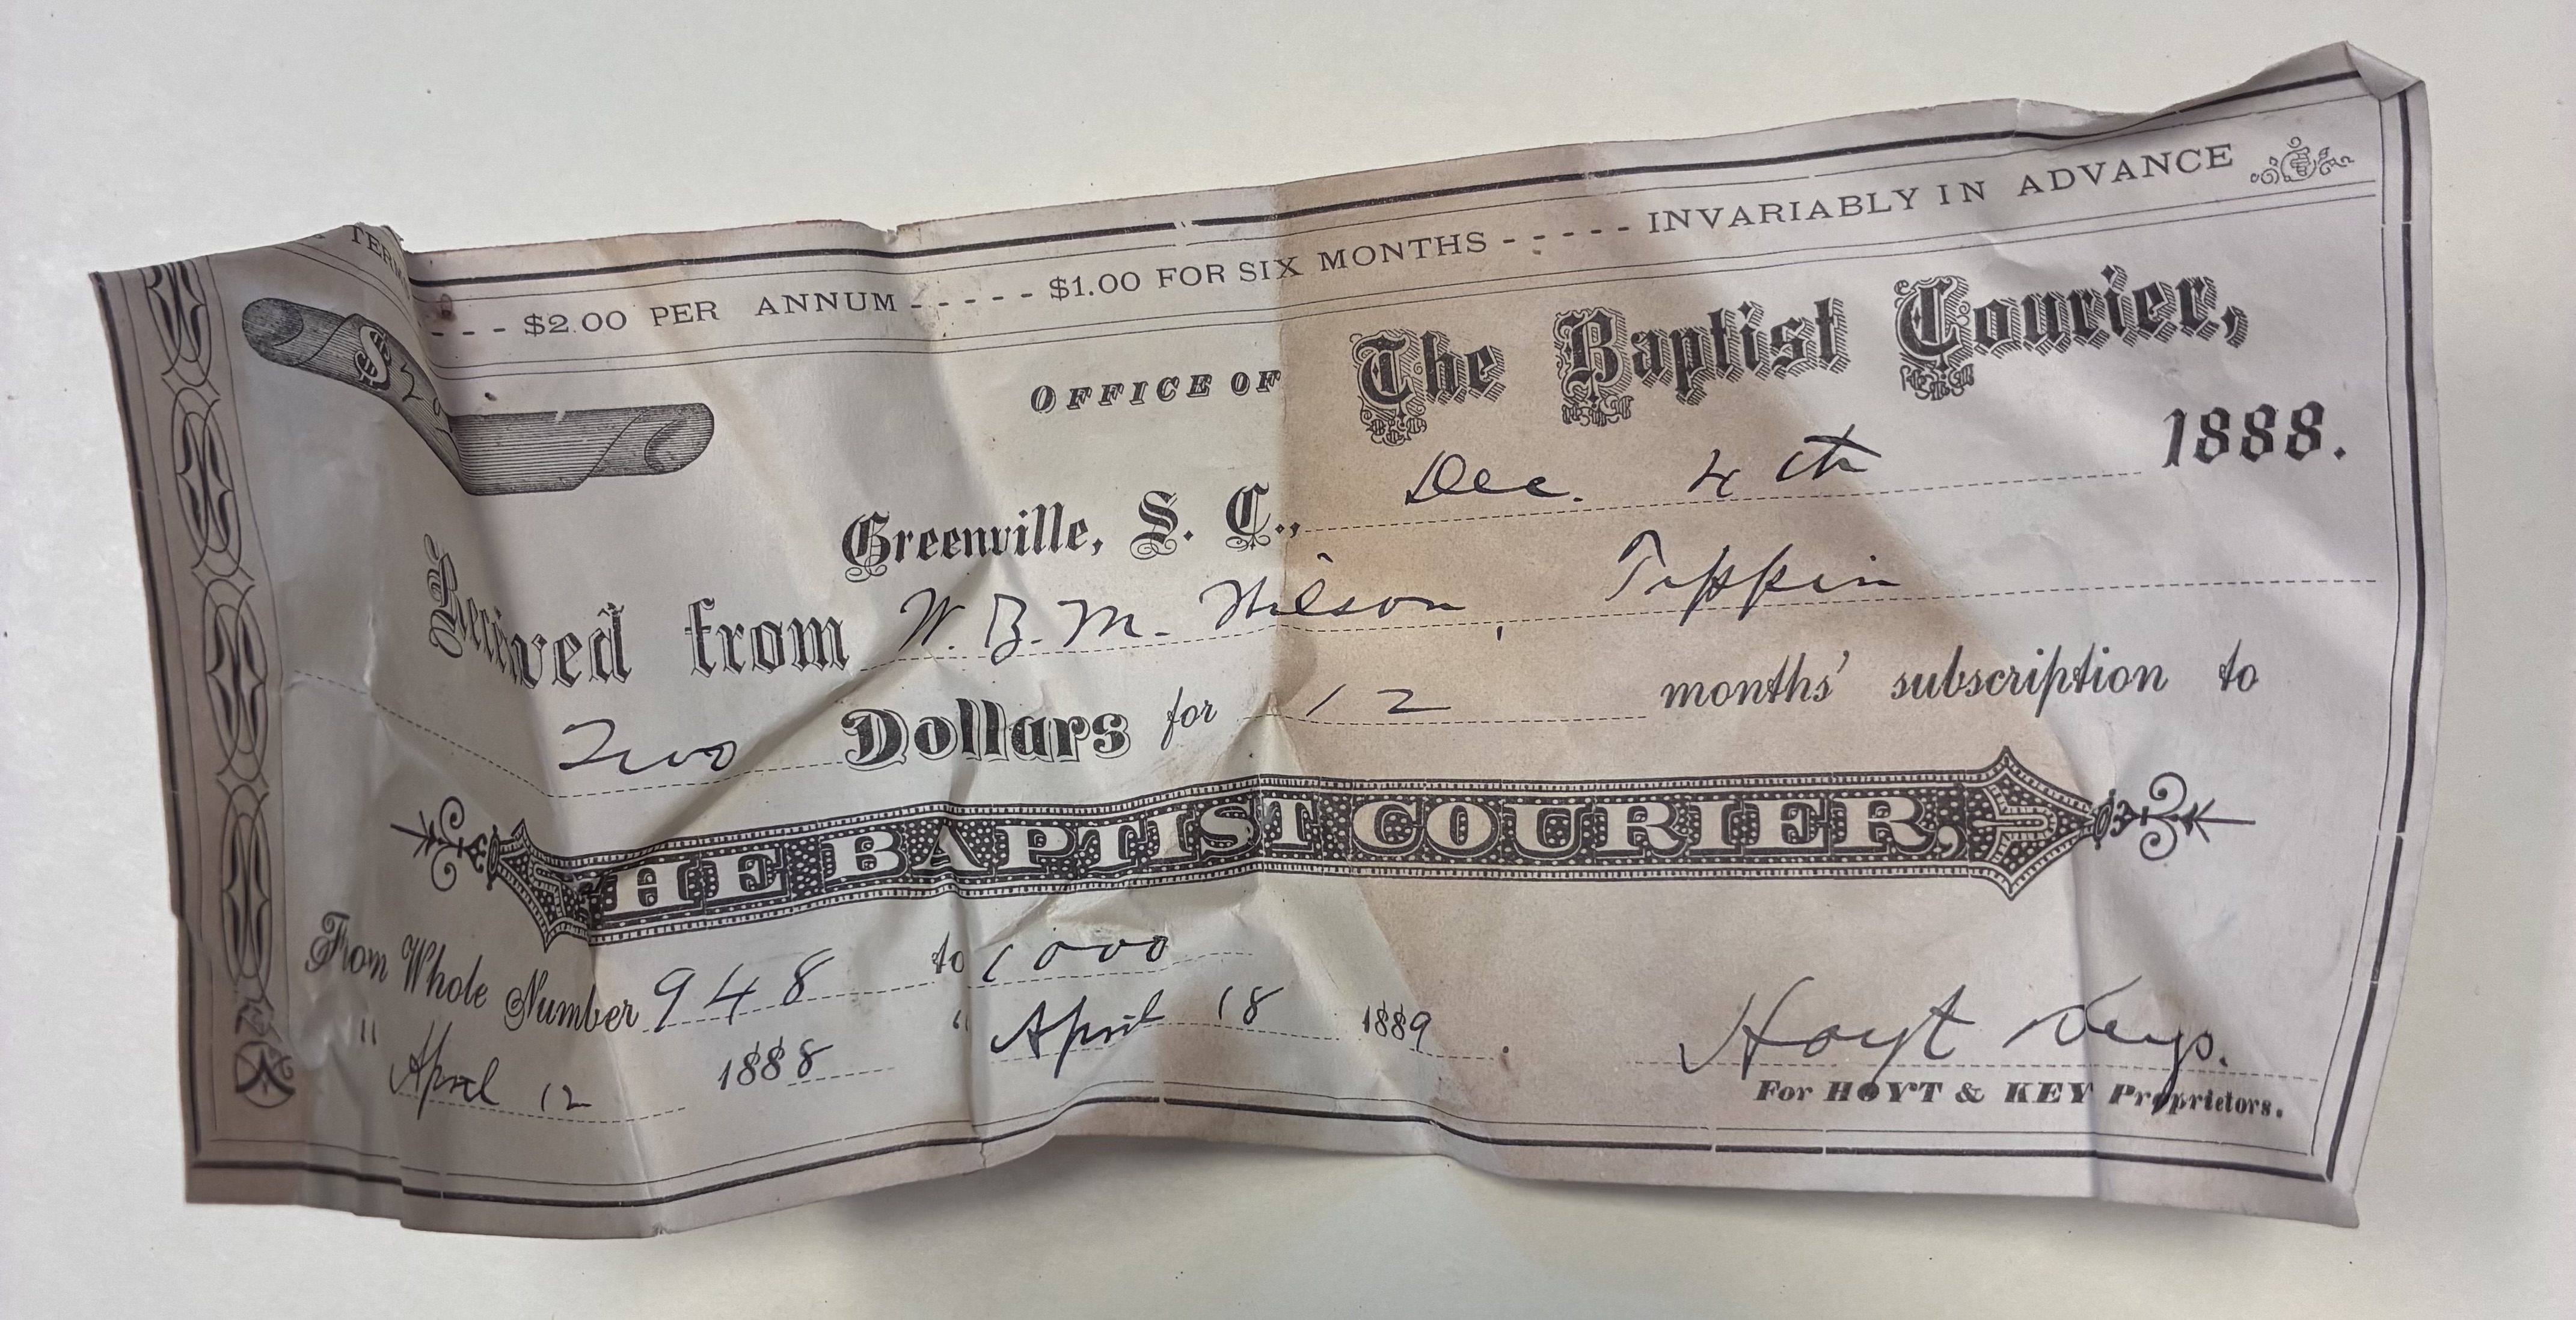 TERM - - - $2.00 PER ANNUM - - - - - $1.00 FOR SIX MONTHS - - - - - INVARIABLY IN ADVANCE
$2.00
OFFICE OF The Baptist Courier,
Greenville, S. C., Dec. 4th 1888.
Received from W. B. M. Wilson, Tippin
Two Dollars for 12 months' subscription to
THE BAPTIST COURIER,
From Whole Number 948 to 1000
" April 12 1888 " April 18 1889.
Hoyt Keys.
For HOYT & KEY Proprietors.